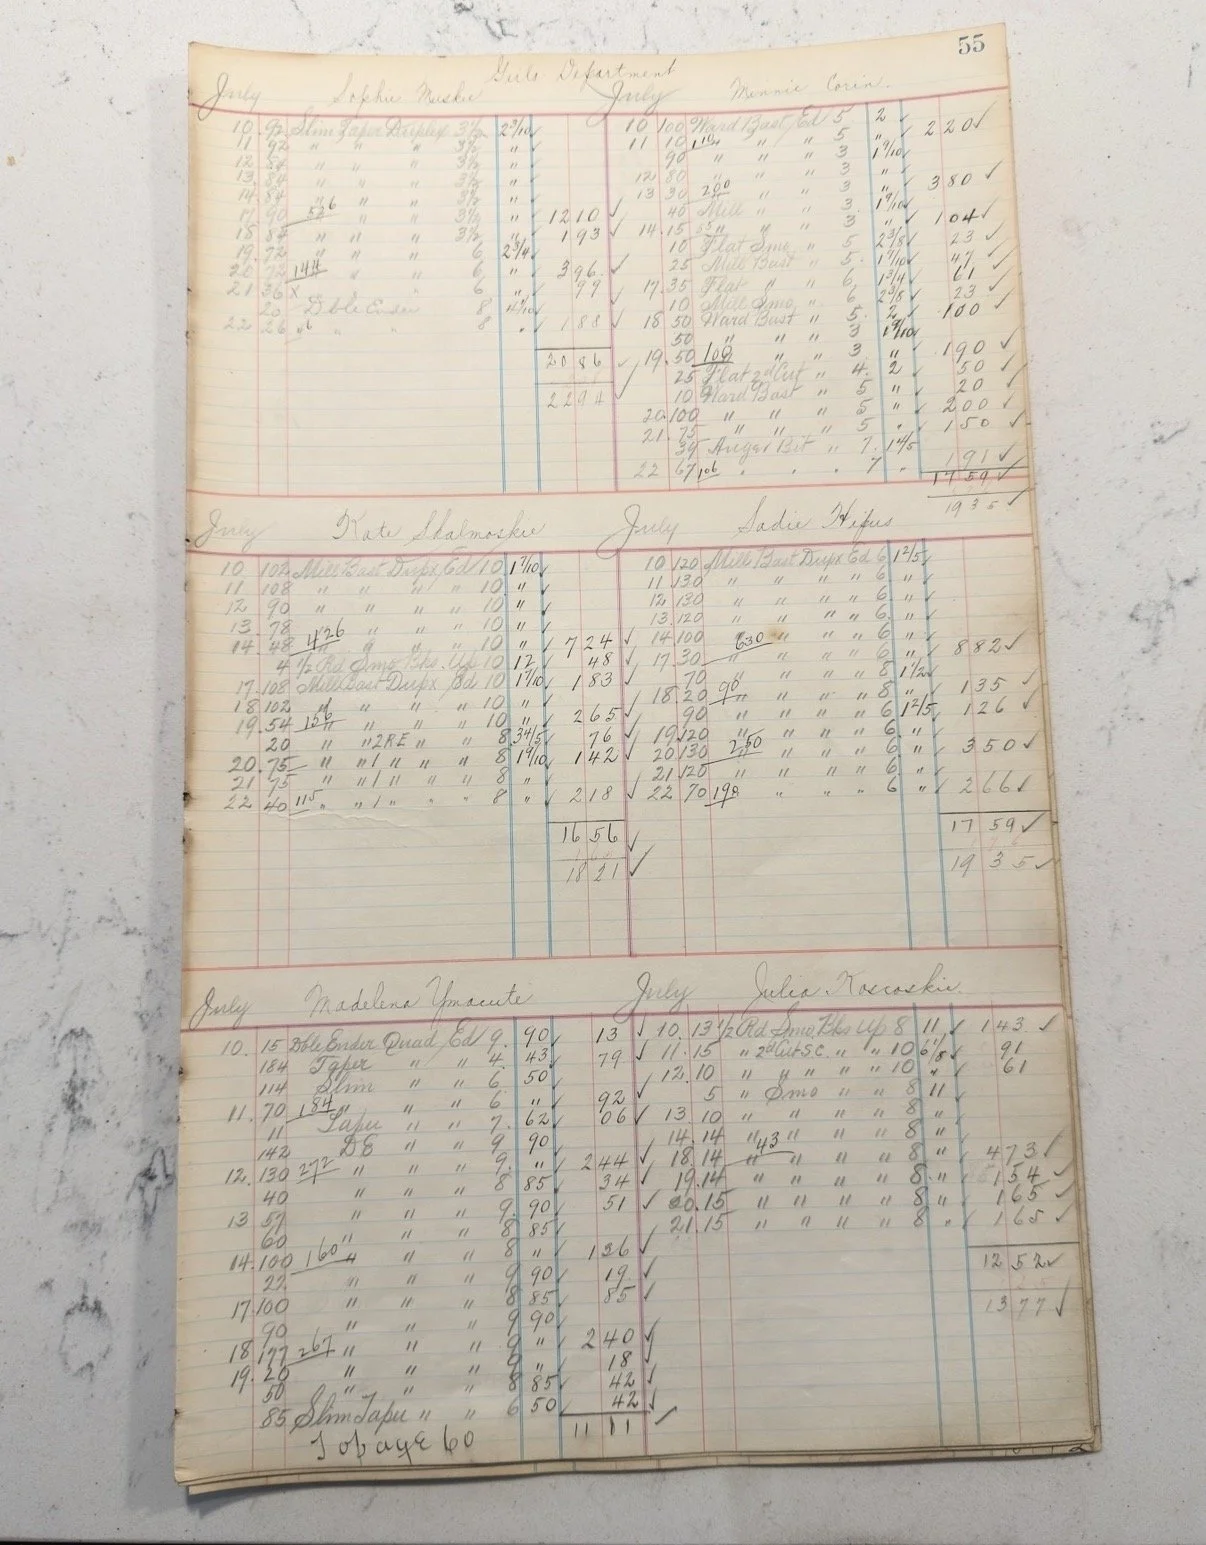 55
Girls Department
July Sophie Muskie
10 92 Slim Taper Duplex 3½ 2 3/10 ✓
11 92 " " " 3½ " ✓
12 " " " 3½ " ✓
13 84 " " " 3½ " ✓
14 84 " " " 3½ " ✓
17 90 " " " 3½ " ✓ 1210 ✓
18 84 " " " 3½ " ✓ 193 ✓
19 72 " " " 6 2 3/4 ✓
20 72 144 " " 6 " ✓ 396 ✓
21 36 x " 6 " ✓ 99 ✓
20 Dble Ender 8 4 7/10 ✓
22 26 46 " " 8 " 188 ✓
2086 ✓
2294 ✓
July Minnie Corin
10 100 Ward Bast Ed 5 2 ✓ 220 ✓
11 10 110 " " 5 " ✓
90 " " " 3 1 9/10 ✓
12 80 " " " 3 " ✓ 380 ✓
13 30 200 " " 3 " ✓
40 Mill " " 3 1 9/10 ✓ 104 ✓
14 15 55 " " 3 " ✓
10 Flat Smo " 5 2 3/8 ✓ 23 ✓
25 Mill Bast " 5 1 7/10 ✓ 47 ✓
17 35 Flat " " 6 1 3/4 ✓ 61 ✓
10 Mill Smo " 6 2 3/8 ✓ 23 ✓
18 50 Ward Bast " 5 2 ✓ 100 ✓
50 " " " 3 1 9/10 ✓
19 50 100 " " 3 " ✓ 190 ✓
25 Flat 2d Cut " 4 2 ✓ 50 ✓
10 Ward Bast " 5 " ✓ 20 ✓
20 100 " " " 5 " ✓ 200 ✓
21 75 " " " 5 " ✓ 150 ✓
39 Auger Bit " 7 1 4/5 ✓
22 67 106 " " " 7 " ✓ 191 ✓
1759 ✓
1935 ✓
July Kate Shalmoskie
10 102 Mill Bast Dupx Ed 10 1 7/10 ✓
11 108 " " " " 10 " ✓
12 90 " " " " 10 " ✓
13 78 " " " 10 " ✓
14 48 426 " " " 10 " ✓ 724 ✓
4 ½ Rd Smo Bks Up 10 12 ✓ 48 ✓
17 108 Mill Bast Dupx Ed 10 1 7/10 ✓ 183 ✓
18 102 " " " " 10 " ✓
19 54 156 " " " " 10 " ✓ 265 ✓
20 " " 2RE " " 8 3 4/5 ✓ 76 ✓
20 75 " " 1 " " " 8 1 9/10 ✓ 142 ✓
21 75 " " 1 " " " 8 " ✓
22 40 115 " " 1 " " " 8 " ✓ 218 ✓
1656 ✓
1821 ✓
July Sadie Hifus
10 120 Mill Bast Dupx Ed 6 1 2/5 ✓
11 130 " " " " 6 " ✓
12 130 " " " " 6 " ✓
13 120 " " " " 6 " ✓
14 100 630 " " " 6 " ✓ 882 ✓
17 30 " " " " 6 " ✓
70 " " " " 8 1 1/2 ✓
18 20 90 " " " " 8 " ✓ 135 ✓
90 " " " " 6 1 2/5 ✓ 126 ✓
19 120 " " " " 6 " ✓
20 130 250 " " " 6 " ✓ 350 ✓
21 120 " " " " 6 " ✓
22 70 190 " " " 6 " ✓ 266 ✓
1759 ✓
1935 ✓
July Madelena Ymacute
10 15 Dble Ender Quad Ed 9 90 ✓ 13 ✓
184 Taper " " 4 43 ✓ 79 ✓
114 Slim " " 6 50 ✓
11 70 184 " " " 6 " ✓ 92 ✓
11 Taper " " 7 62 ✓ 06 ✓
142 DE " " 9 90 ✓
12 130 272 " " " 9 " ✓ 244 ✓
40 " " " 8 85 ✓ 34 ✓
13 57 " " " 9 90 ✓ 51 ✓
60 " " " 8 85 ✓
14 100 160 " " " 8 " ✓ 136 ✓
22 " " " 9 90 ✓ 19 ✓
17 100 " " " 8 85 ✓ 85 ✓
90 " " " 9 90 ✓
18 177 267 " " " 9 " ✓ 240 ✓
19 20 " " " 9 " ✓ 18 ✓
50 " " " 8 85 ✓ 42 ✓
85 Slim Taper " " 6 50 ✓ 42 ✓
1111 ✓
To page 60
July Julia Koscoskie
10 13 ½ Rd Smo Bks Up 8 11 ✓ 143 ✓
11 15 " 2d Cut S.C. " " 10 6 1/8 ✓ 91
12 10 " " " " " 10 " ✓ 61
5 " Smo " " 8 11 ✓
13 10 " " " " 8 " ✓
14 14 " " " " 8 " ✓
18 14 43 " " " 8 " ✓ 473 ✓
19 14 " " " " 8 " ✓ 154 ✓
20 15 " " " " 8 " ✓ 165 ✓
21 15 " " " " 8 " ✓ 165 ✓
1252 ✓
1377 ✓